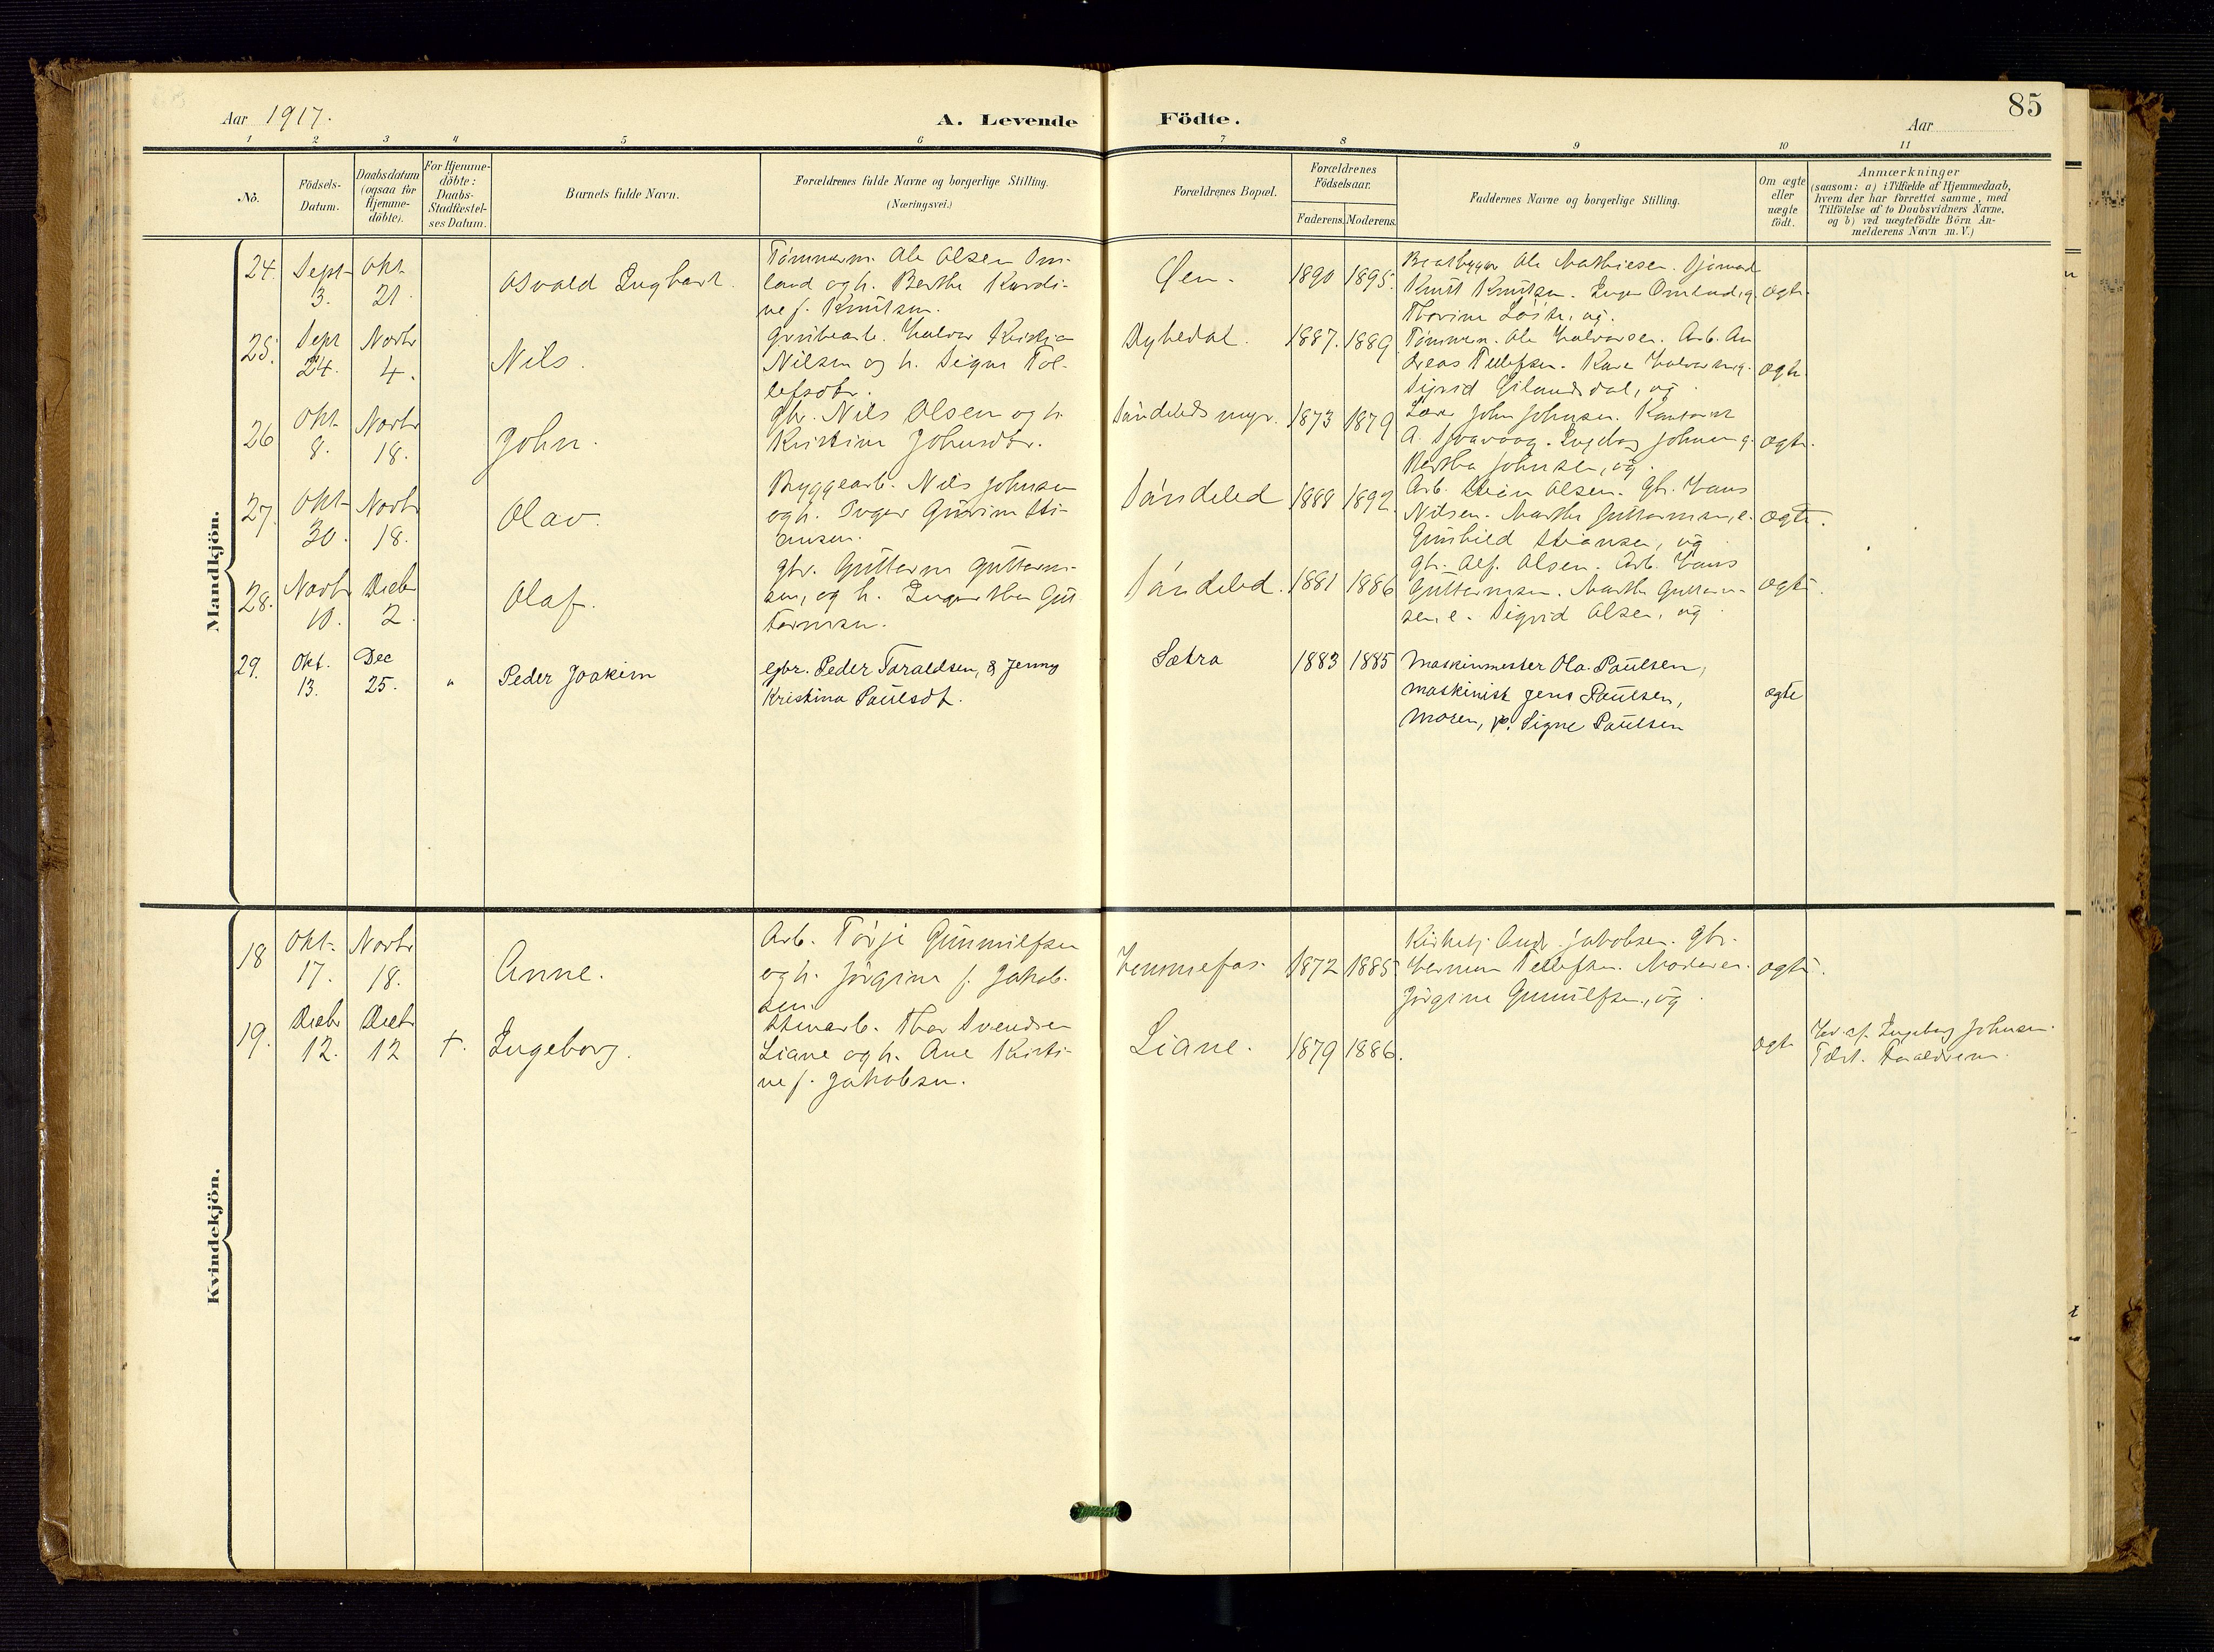 85
Aar 1917.
A. Levende Födte.
Aar
1 2 3 4 5 6 7 8 9 10 11
No.
Födsels-
Datum.
Daabsdatum
(ogsaa for
Hjemme-
döbte).
For Hjemme-
döbte:
Daabs-
Stadfæstel-
ses Datum.
Barnets fulde Navn.
Forældrenes fulde Navne og borgerlige Stilling.
(Næringsvei.)
Forældrenes Bopæl.
Forældrenes
Födselsaar.
Faderens. Moderens.
Faddernes Navne og borgerlige Stilling.
Om ægte
eller
uægte
födt.
Anmærkninger
(saasom: a) i Tilfælde af Hjemmedaab,
hvem der har forrettet samme, med
Tilföielse af to Daabsvidners Navne,
og b) ved uægtefödte Börn An-
melderens Navn m. V.)
Mandkjön.
24.
Sept
3.
Okt.
21.
Osvald Ingbart.
Tømmerm. Ole Olsen Om-
land og h. Berthe Kardi-
ne f. Knutsen.
Øen.
1890 1895.
Baatbygger Ole Mathiesen. Sjömand
Knut Knutsen. Inger Omland, g.
Thorine ug.
ægte.
25.
Sept
24.
Novbr
4.
Nils.
Grubearb. Halvor
Nilsen og h. Signe Tol-
lefsdtr.
Dybedal.
1887. 1889
Tömmerm. Ole Halvorsen. Arb. An
dreas Tellefsen. Kare Halvorsen, g.
Sigrid ug.
ægte.
26
Okt.
8.
Novbr
18.
John.
Gbr. Nils Olsen og h.
Kristine Johnsdtr.
Søndeleds myr.
1873 1879
John Johnsen.
A. Ingeborg Johnsen g.
Bertha Johnsen, ug.
ægte.
27.
Okt.
30.
Novbr
18.
Olav.
Byggearb. Nils Johnsen
og h. Inger Gurine Sti-
ansen.
Søndeled
1888 1892.
Arb. Stian Olsen. Gbr. Hans
Nilsen. Marthe Guttormsen, e.
Gunhild Stiansen, ug.
ægte.
28.
Novbr
10.
Decbr
2.
Olaf.
Gbr. Guttorm Guttorm-
sen, og h. Inger Thea Gut
tormsen.
Søndeled.
1881 1886
Gbr. Alf. Olsen. Arb. Hans
Guttormsen. Marthe Guttorm-
sen, e. Sigrid Olsen, ug
ægte.
29.
Okt.
13.
Dec
25.
"
Peder Joakim
gbr. Peder Taraldsen, & Jenny
Kristina Paulsdt.
Sætra
1883 1885
Maskinmester Ola Paulsen,
maskinist Jens Paulsen,
Moren, p. Signe Paulsen
ægte
Kvindekjön.
18
Okt.
17.
Novbr
18.
Anne.
Arb. Törje Gunnulfsen
og h. Jörgine f. Jakob-
sen
1872 1885
Kirketj. Andr. Jakobsen. Gbr.
Herman Tellefsen. Moderen.
Jörgine Gunnulfsen, ug.
ægte.
19.
Decbr
12.
Decbr
12
†.
Ingeborg.
Stenarb. Thor Svendsen
Liane og h. Ane Kirsti-
ne f. Jakobsen.
Liane.
1879 1886.
ægte
Hd. af. Ingeborg Johnsen.
Taraldsen.